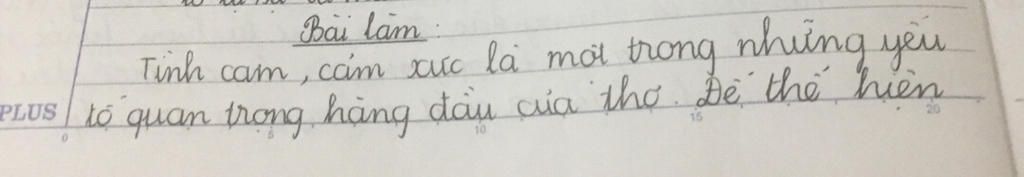 Bài làm:
Tình cảm, cảm xúc là một trong những yếu
PLUS tố quan trọng hàng đầu của thơ. Để thể hiện
0 5 10 15 20